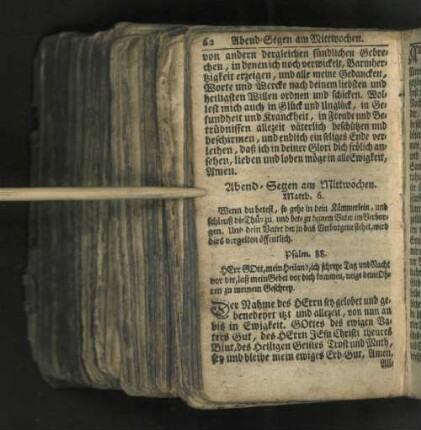 62 Abend-Segen am Mittwochen.
von andern dergleichen sündlichen Gebre-
chen, in denen ich noch verwickelt, Barmher-
tzigkeit erzeigen, und alle meine Gedancken,
Worte und Wercke nach deinem liebsten und
heiligsten Willen ordnen und schicken. Wol-
lest mich auch in Glück und Unglück, in Ge-
sundheit und Kranckheit, in Freude und Be-
trübnissen allezeit väterlich beschützen und
beschirmen, und endlich ein seliges Ende ver-
leihen, daß ich in deiner Glori dich frölich an-
sehen, lieben und loben möge in alle Ewigkeit,
Amen.
Abend-Segen am Mittwochen.
Matth. 6.
Wenn du betest, so gehe in dein Kämmerlein, und
schleuß die Thür zu, und bete zu deinem Vater im Verbor-
genen. Und dein Vater der in das Verborgene siehet, wird
dirs vergelten öffentlich.
Psalm. 88.
HErr GOtt, mein Heiland, ich schreye Tag und Nacht
vor dir, laß mein Gebet vor dich kommen, neige deine Oh-
ren zu meinem Geschrey.
Der Nahme des HErrn sey gelobet und ge-
benedeyet itzt und allezeit, von nun an
bis in Ewigkeit. GOttes des ewigen Va-
ters Gut, des HErrn JEsu Christi theures
Blut, des Heiligen Geistes Trost und Muth,
sey und bleibe mein ewiges Erb-Gut, Amen.
All-